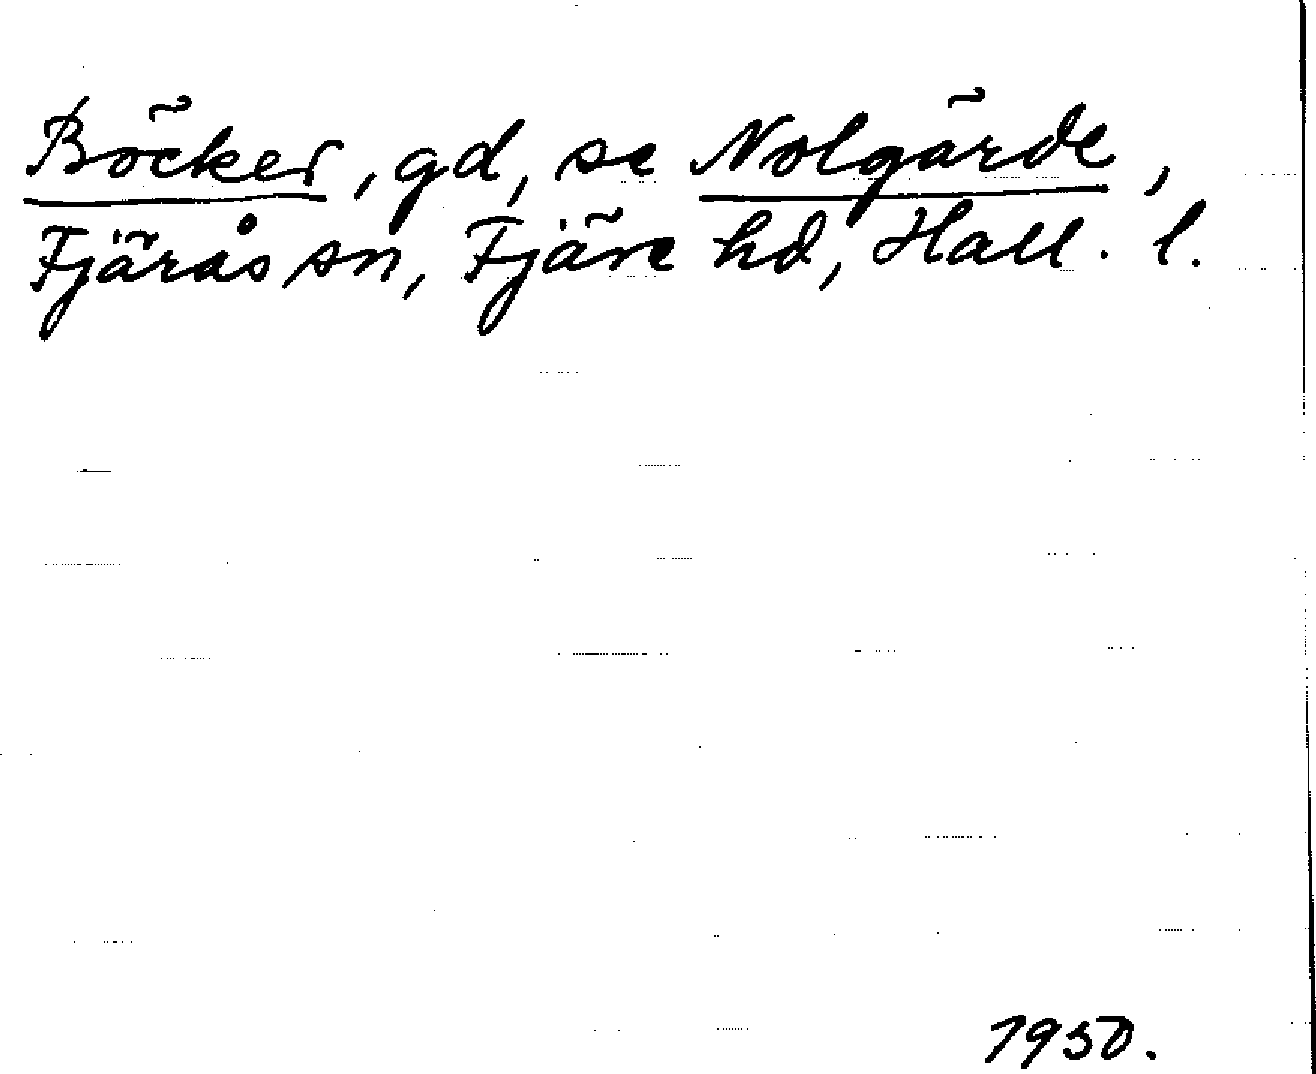 Böcker, gd, se Nolgärde,
Fjärås sn, Fjäre hd, Hall. l.
1950.